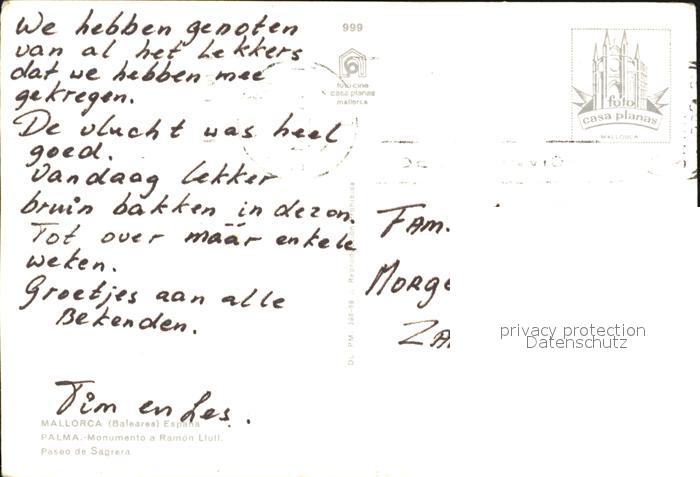 We hebben genoten
van al het Lekkers
dat we hebben mee
gekregen.
De vlucht was heel
goed.
Vandaag lekker
bruin bakken in de zon.
Tot over máár enkele
weken.
Groetjes aan alle
Bekenden.
Tim en Les.
MALLORCA (Baleares) España
PALMA.-Monumento a Ramón Llull.
Paseo de Sagrera
999
foto-cine
casa planas
mallorca
Reproducción prohibida
foto
casa planas
MALLORCA
FAM.
MORGE
ZA
privacy protection
Datenschutz